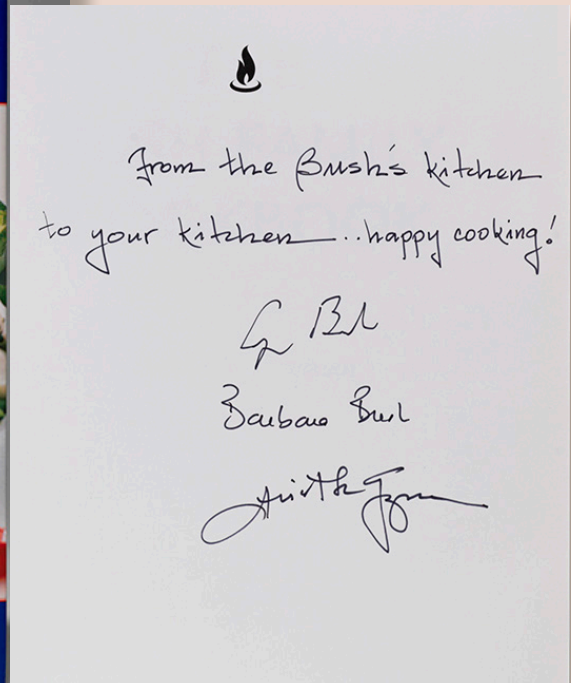 From the Bush's kitchen
to your kitchen...happy cooking!
G Bush
Barbara Bush